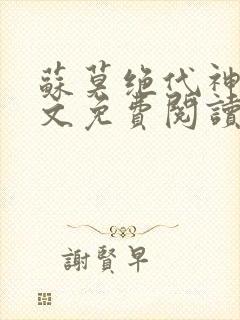 蘇莫绝代神
文免費閱讀
謝賢早